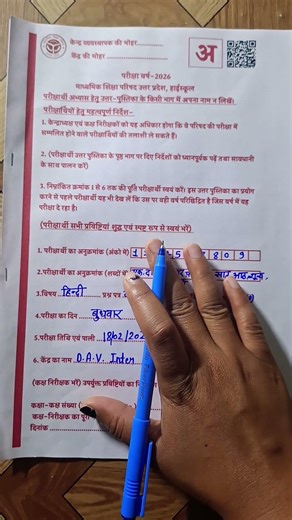 केन्द्र व्यवस्थापक की मोहर
केंद्र की मोहर
अ
परीक्षा वर्ष-2026
माध्यमिक शिक्षा परिषद उत्तर प्रदेश, हाईस्कूल
परीक्षार्थी अभ्यास हेतु उत्तर-पुस्तिका के किसी भाग में अपना नाम न लिखें।
परीक्षार्थियों हेतु महत्वपूर्ण निर्देश-
1. केन्द्राध्यक्ष एवं कक्ष निरीक्षकों को यह अधिकार होगा कि वे परिषद की परीक्षा में
सम्मलित होने वाले परीक्षार्थियों की तलाशी ले सकते हैं।
2. (परीक्षार्थी उत्तर पुस्तिका के पृष्ठ भाग पर दिए निर्देशों को ध्यानपूर्वक पढ़ें तथा सावधानी
के साथ पालन करें)
3. निम्नांकित क्रमांक 1 से 6 तक की पूर्ति परीक्षार्थी स्वयं करें। इस उत्तर पुस्तिका का प्रयोग
करने से पहले परीक्षार्थी यह भी देख लें कि उस पर वही वर्ष परिचिह्नित है जिस वर्ष में वह
परीक्षा दे रहा है।
(परीक्षार्थी सभी प्रविष्टियां शुद्ध एवं स्पष्ट रूप से स्वयं भरें)
1. परीक्षार्थी का अनुक्रमांक (अंको में) 1 5 8 0 9
2. परीक्षार्थी का अनुक्रमांक (शब्दों
3. विषय हिन्दी प्रश्न पत्र
4. परीक्षा का दिन बुधवार
5. परीक्षा तिथि एवं पाली 18/02/202
6. केंद्र का नाम D.A.V. Inter
(कक्ष निरीक्षक भरें) उपर्युक्त प्रविष्टियों का
कक्षा-कक्ष संख्या
कक्ष-निरीक्षक का पूरा
दिनांक